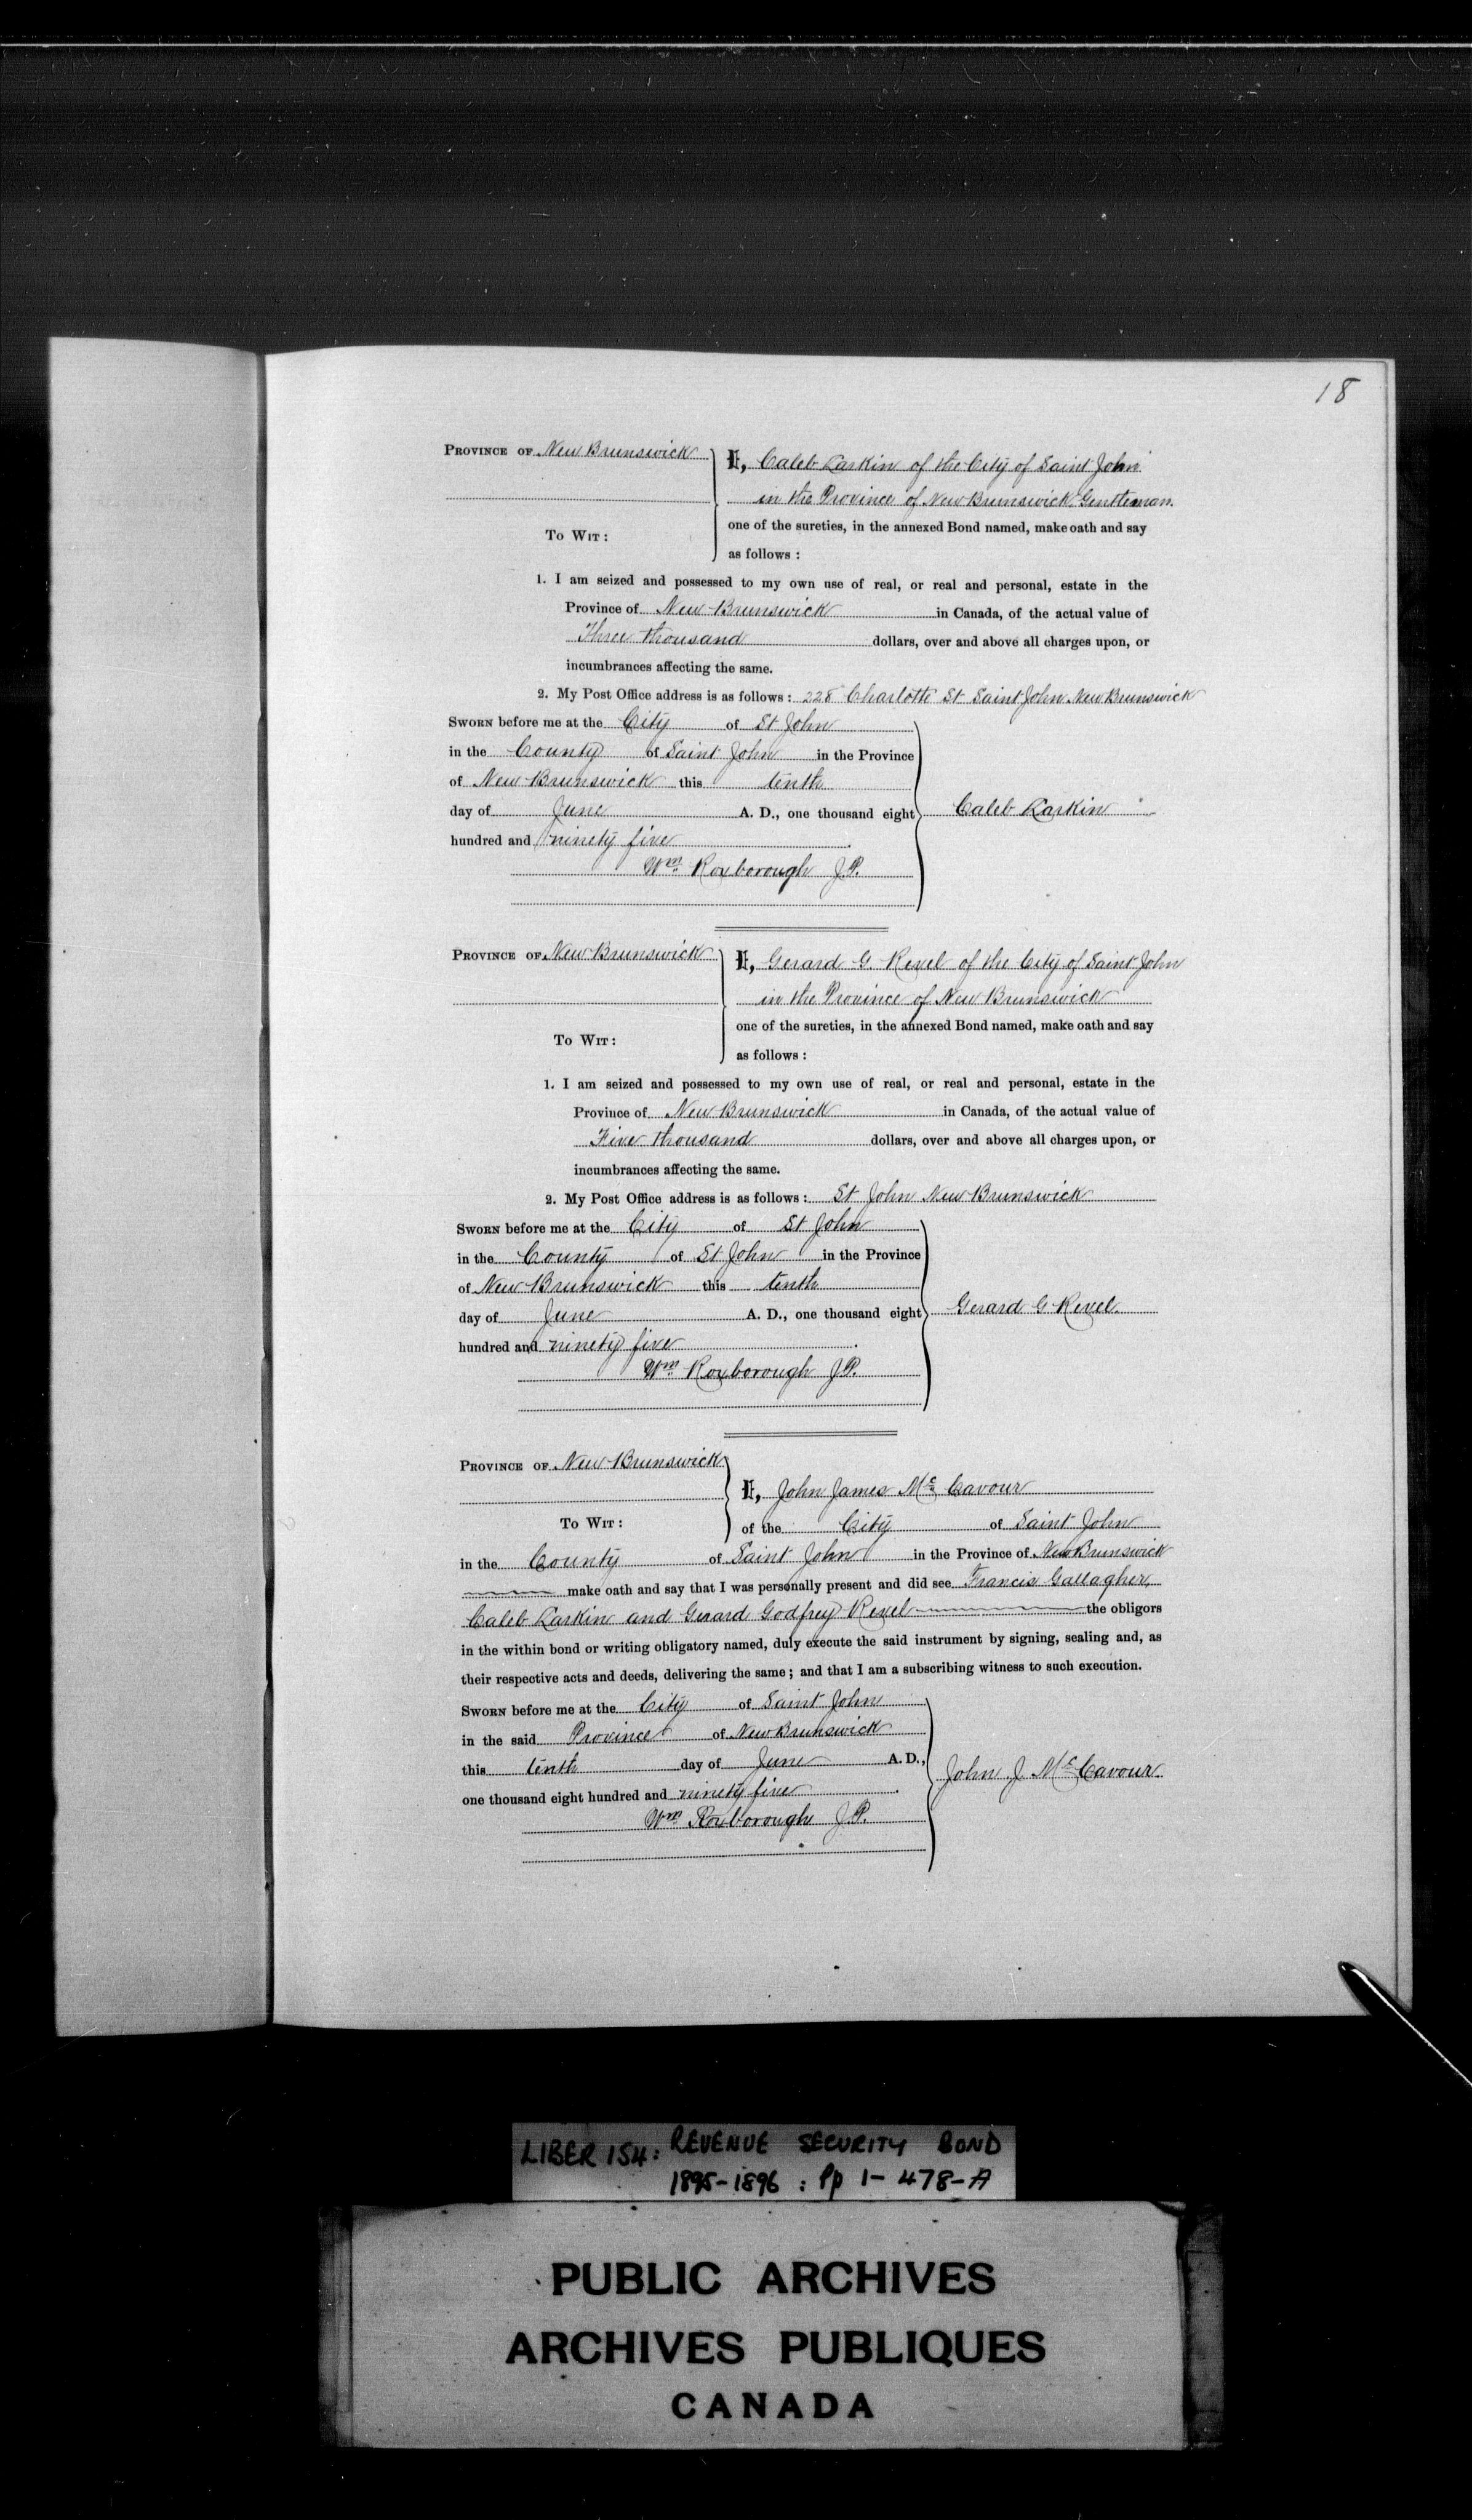 18
PROVINCE OF New Brunswick
I, Caleb Larkin of the City of Saint John
in the Province of New Brunswick Gentleman.
TO WIT:
one of the sureties, in the annexed Bond named, make oath and say
as follows:
1. I am seized and possessed to my own use of real, or real and personal, estate in the
Province of New Brunswick in Canada, of the actual value of
Three thousand dollars, over and above all charges upon, or
incumbrances affecting the same.
2. My Post Office address is as follows: 228 Charlotte St Saint John New Brunswick
SWORN before me at the City of St John
in the County of Saint John in the Province
of New Brunswick this tenth
day of June A. D., one thousand eight
Caleb Larkin
hundred and ninety five
Wm. Roxborough J.P.
PROVINCE OF New Brunswick
I, Gerard G. of the City of Saint John
in the Province of New Brunswick
TO WIT:
one of the sureties, in the annexed Bond named, make oath and say
as follows:
1. I am seized and possessed to my own use of real, or real and personal, estate in the
Province of New Brunswick in Canada, of the actual value of
Five thousand dollars, over and above all charges upon, or
incumbrances affecting the same.
2. My Post Office address is as follows: St John New Brunswick
SWORN before me at the City of St John
in the County of St John in the Province
of New Brunswick this tenth
day of June A. D., one thousand eight
Gerard G
hundred and ninety five
Wm. Roxborough J.P.
PROVINCE OF New Brunswick
I, John James Mc Cavour
TO WIT:
of the City of Saint John
in the County of Saint John in the Province of New Brunswick
make oath and say that I was personally present and did see Francis Gallagher,
Caleb Larkin and Gerard Godfrey the obligors
in the within bond or writing obligatory named, duly execute the said instrument by signing, sealing and, as
their respective acts and deeds, delivering the same; and that I am a subscribing witness to such execution.
SWORN before me at the City of Saint John
in the said Province of New Brunswick
this tenth day of June A. D.,
John J. McCavour.
one thousand eight hundred and ninety five
Wm. Roxborough J.P.
LIBER 154: REVENUE SECURITY BOND
1895-1896 : Pp 1-478-A
PUBLIC ARCHIVES
ARCHIVES PUBLIQUES
CANADA